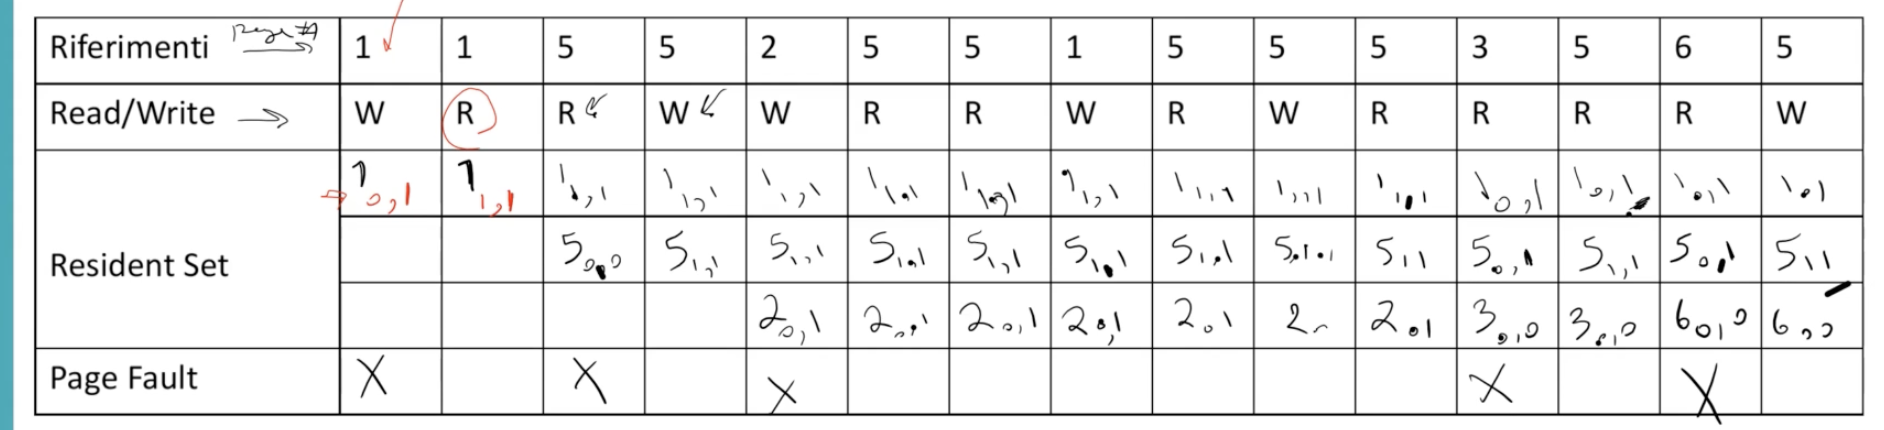 Riferimenti page # 1 1 5 5 2 5 5 1 5 5 5 3 5 6 5
Read/Write W R R W W R R W R W R R R R W
1 0,1 1 1,1 1 1,1 1 1,1 1 1,1 1 1,1 1 1,1 1 1,1 1 1,1 1 1,1 1 1,1 1 0,1 1 0,1 1 0,1 1 0,1
Resident Set 5 0,0 5 1,1 5 1,1 5 1,1 5 1,1 5 1,1 5 1,1 5 1,1 5 1,1 5 0,1 5 1,1 5 0,1 5 1,1
2 0,1 2 0,1 2 0,1 2 0,1 2 0,1 2 2 0,1 3 0,0 3 0,0 6 0,0 6 0,0
Page Fault X X X X X